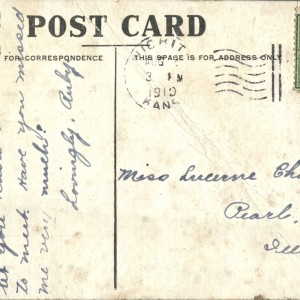 POST CARD
FOR CORRESPONDENCE
THIS SPACE IS FOR ADDRESS ONLY
WICHIT
3 PM
1910
KANS
let you
to meet. Have you missed
me very much?
Lovingly, Ruby
Miss Lucerne
Pearl,
Ill